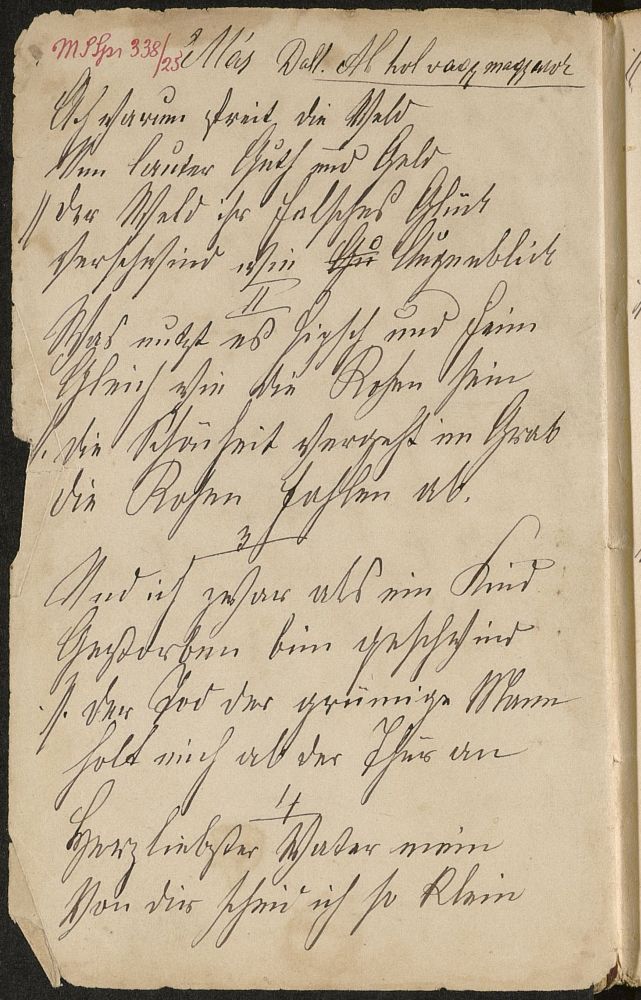 MSSpr 338/25
Más Dall. Ah hol vagy magyarok
Ach warum streit die Weld
Um lauter Guth und Geld
// der Weld ihr falsches Glück
Verschwind wie Augenblick
II
Was nutzt es hipsch und fein
Gleich wie die Rosen sein
/. die Schönheit vergeht im Grab
die Rosen fahlen ab.
3
Und ich zwar als ein Kind
Gestorben bin geschwind
/. der Tod der grimmige Mann
holt mich ab der Thür an
4
Herzliebster Vater mein
Von dir scheid ich so Klein